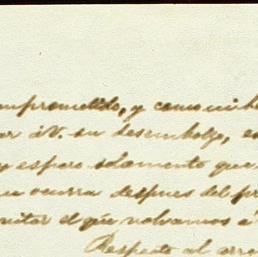 comprometido, y como ni h
ar á V. su desembolzo, es
y espero solamente que
ue ocurra despues del pr
evitar el que volvamos á
Respecto al arre